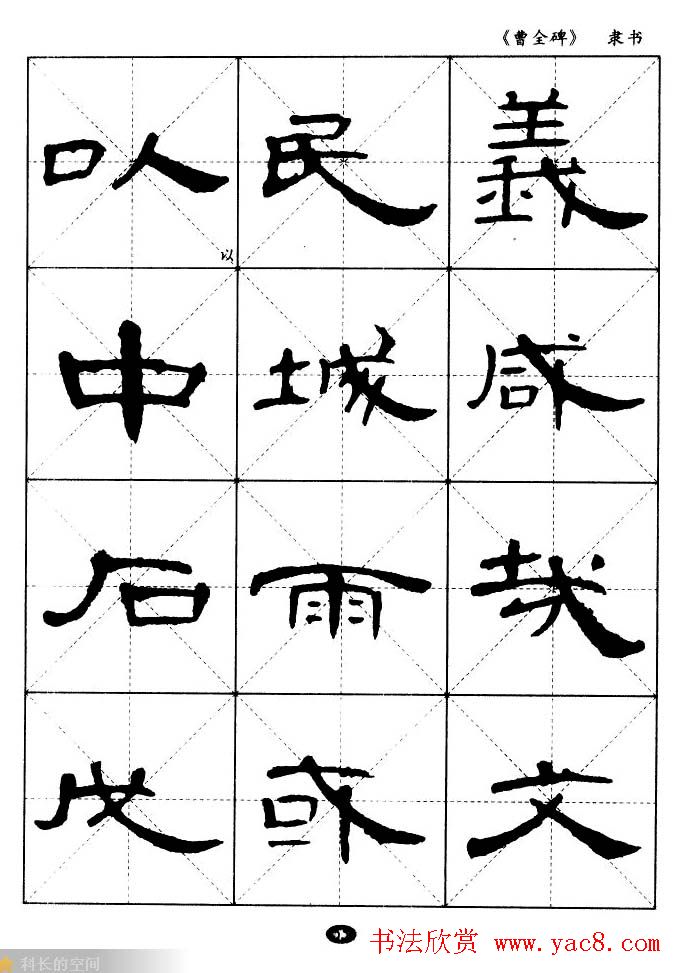 《曹全碑》 隶书
義咸文
民城雨或
以中石戊
以
书法欣赏 www.yac8.com
科长的空间